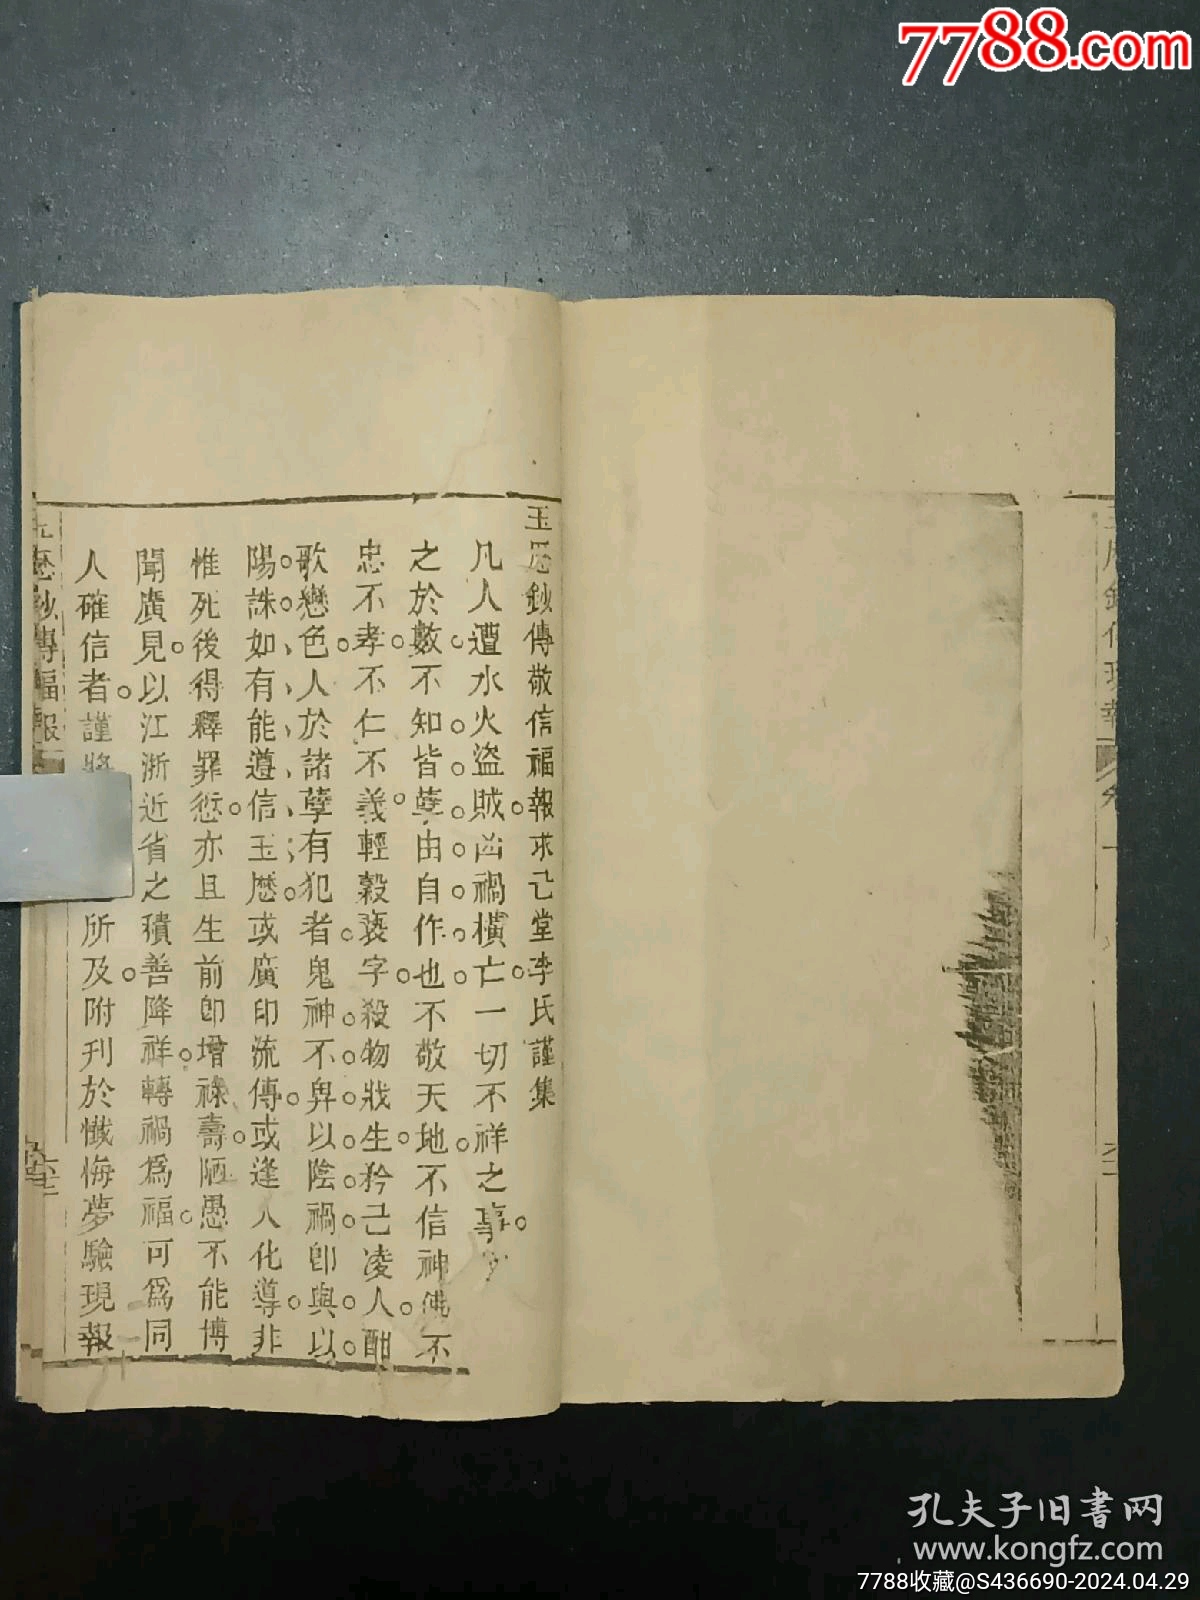 7788.com
玉歷鈔傳敬信福報求己堂李氏謹集
凡人遭水火盜賊凶禍橫亡一切不祥之事
之於數不知皆孽由自作也不敬天地不信神佛不
忠不孝不仁不義輕穀褻字殺物戕生矜己凌人酣
歌戀色人於諸孽有犯者鬼神不畀以陰禍卽與以
陽誅如有能遵信玉歷或廣印流傳或逢人化導非
惟死後得釋罪愆亦且生前卽增祿壽陋愚不能博
聞廣見以江浙近省之積善降祥轉禍爲福可爲同
人確信者謹將所及附刊於懺悔夢驗現報
歷鈔傳福報
孔夫子旧書网
www.kongfz.com
7788收藏@S436690-2024.04.29